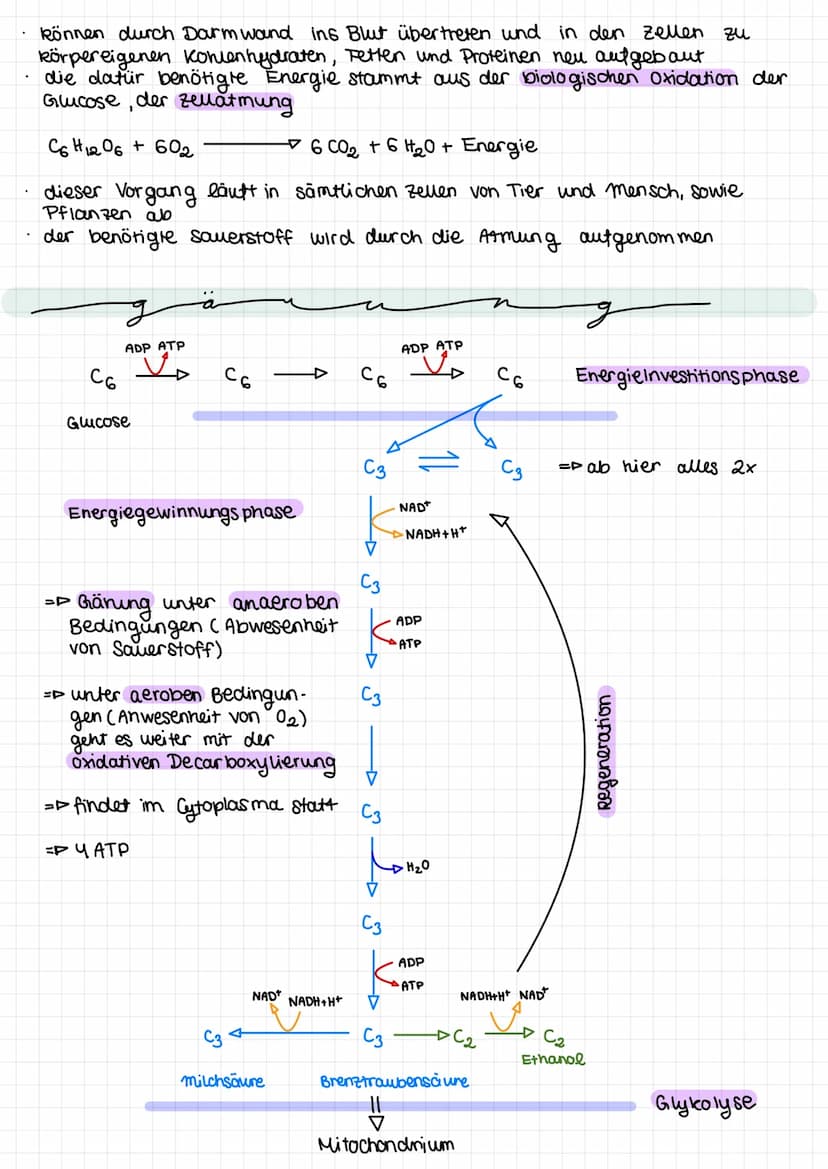 · können durch Darmwand ins Blut übertreten und in den Zellen zu
körpereigenen Kohlenhydraten, Fetten und Proteinen neu aufgebaut
· die dafür benötigte Energie stammt aus der biologischen Oxidation der
Glucose, der Zellatmung
C₆H₁₂O₆ + 6O₂ ⟶ 6 CO₂ + 6 H₂O + Energie
· dieser Vorgang läuft in sämtlichen Zellen von Tier und Mensch, sowie
Pflanzen ab
· der benötigte Sauerstoff wird durch die Atmung aufgenommen
gärung
ADP ATP ADP ATP
C₆ → C₆ → C₆ → C₆ Energieinvestitionsphase
Glucose
C₃ ⇌ C₃ => ab hier alles 2x
Energiegewinnungsphase
NAD⁺
NADH+H⁺
C₃
=> Gärung unter anaeroben
Bedingungen (Abwesenheit
von Sauerstoff)
ADP
ATP
=> unter aeroben Bedingun-
gen (Anwesenheit von O₂)
geht es weiter mit der
oxidativen Decarboxylierung
C₃
Regeneration
=> findet im Cytoplasma statt
C₃
=> 4 ATP
H₂O
C₃
ADP
ATP
NAD⁺ NADH+H⁺ NADH+H⁺ NAD⁺
C₃ ← C₃ → C₂ → C₂
Ethanol
Milchsäure Brenztraubensäure
Glykolyse
Mitochondrium